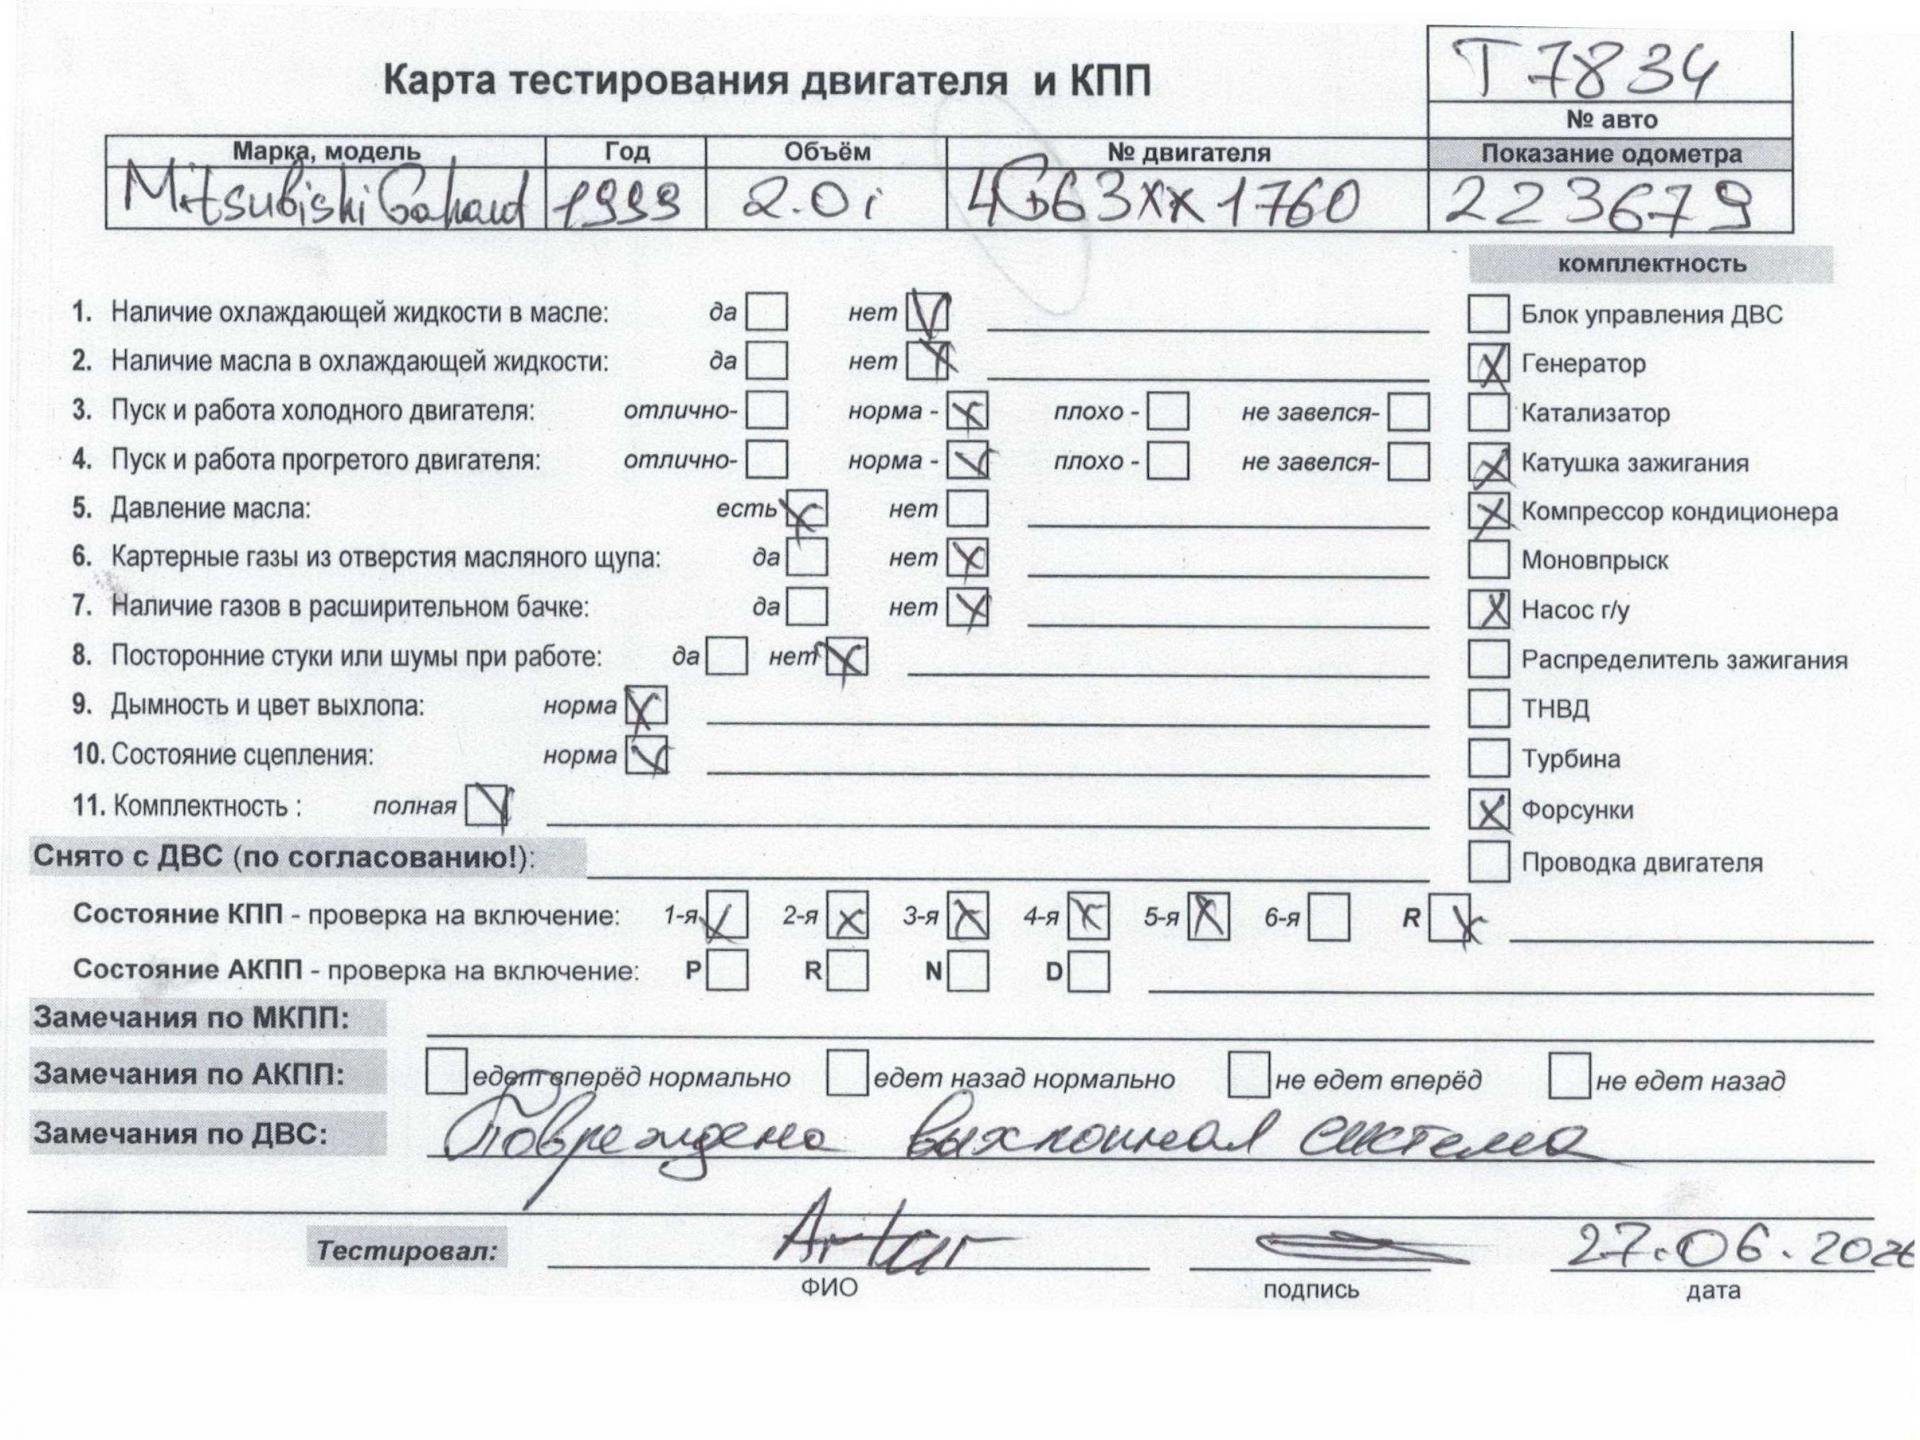 Т 7834
Карта тестирования двигателя и КПП
№ авто
Марка, модель Год Объём № двигателя Показание одометра
Mitsubishi 1999 2.0 i 4G63XX1760 223679
комплектность
1. Наличие охлаждающей жидкости в масле: да нет Блок управления ДВС
2. Наличие масла в охлаждающей жидкости: да нет Генератор
3. Пуск и работа холодного двигателя: отлично- норма - плохо - не завелся- Катализатор
4. Пуск и работа прогретого двигателя: отлично- норма - плохо - не завелся- Катушка зажигания
5. Давление масла: есть нет Компрессор кондиционера
6. Картерные газы из отверстия масляного щупа: да нет Моновпрыск
7. Наличие газов в расширительном бачке: да нет Насос г/у
8. Посторонние стуки или шумы при работе: да нет Распределитель зажигания
9. Дымность и цвет выхлопа: норма ТНВД
10. Состояние сцепления: норма Турбина
11. Комплектность : полная Форсунки
Снято с ДВС (по согласованию!): Проводка двигателя
Состояние КПП - проверка на включение: 1-я 2-я 3-я 4-я 5-я 6-я R
Состояние АКПП - проверка на включение: P R N D
Замечания по МКПП:
Замечания по АКПП: едет вперёд нормально едет назад нормально не едет вперёд не едет назад
Замечания по ДВС: Повреждена выхлопная система
Тестировал: Artur 27.06.2026
ФИО подпись дата